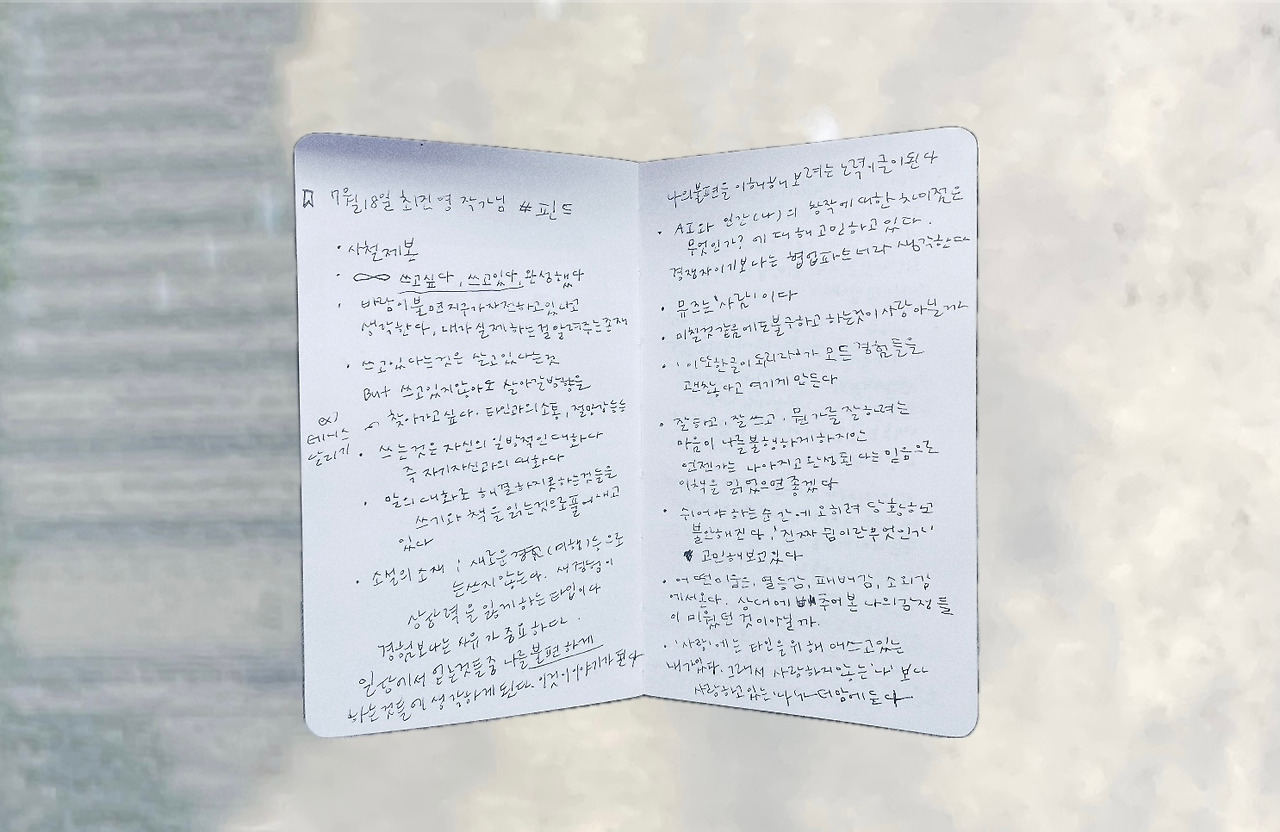 7월18일 최진영 작가님 #핀드
• 사철제본
• 쓰고싶다, 쓰고있다, 완성했다
• 바람이불면지구가자전하고있다고
생각한다, 내가실제하는걸알려주는존재
• 쓰고있다는것은 살고있다는것
But 쓰고있지않아도 살아갈방향을
찾아가고싶다. 타인과의소통, 절망감등등
ex)
테니스
달리기
• 쓰는것은 자신의 일방적인 대화다
즉 자기자신과의 대화다
• 말의 대화로 해결하지못하는것들을
쓰기와 책을 읽는것으로풀어내고
있다
• 소설의 소재 ; 새로운 경험(여행)등으로
는쓰지않는다. 새경험이
상상력을 잃게하는타입이다
경험보다는 사유가 중요하다.
일상에서 얻는것들중 나를불편하게
하는것들에 생각하게된다. 이것이이야기가 된다
나의불편을 이해해 보려는 노력이글이된다
• AI와 인간(나)의 창작에 대한 차이점은
무엇인가? 에 대해 고민하고 있다.
경쟁자이기보다는 협업파트너라 생각한다
• 뮤즈는 '사람'이다
• 미친것같음에도불구하고 하는것이 사랑아닐까라
• '이또한글이되리라'가 모든 경험들을
괜찮다고 여기게 만든다
• 잘하고, 잘쓰고, 뭔가를 잘하려는
마음이 나를불행하게하지만
언젠가는 나아지고완성된다는믿음으로
이책을 읽었으면좋겠다
• 쉬어야 하는순간에 오히려 당황하고
불안해진다, '진짜 쉼이란무엇인가'
고민해보고있다
• 어떤미움은, 열등감, 패배감, 소외감
에서온다. 상대에 비추어본 나의감정들
이 미웠던 것이아닐까.
• '사랑'에는 타인을위해 애쓰고있는
내가있다. 그래서 사랑하지않는 '나' 보다
사랑하고있는 '나'가더맘에든다